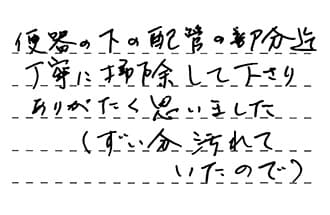 便器の下の配管の部分迄
丁寧に掃除して下さり
ありがたく思いました
(ずい分汚れて
いたので)